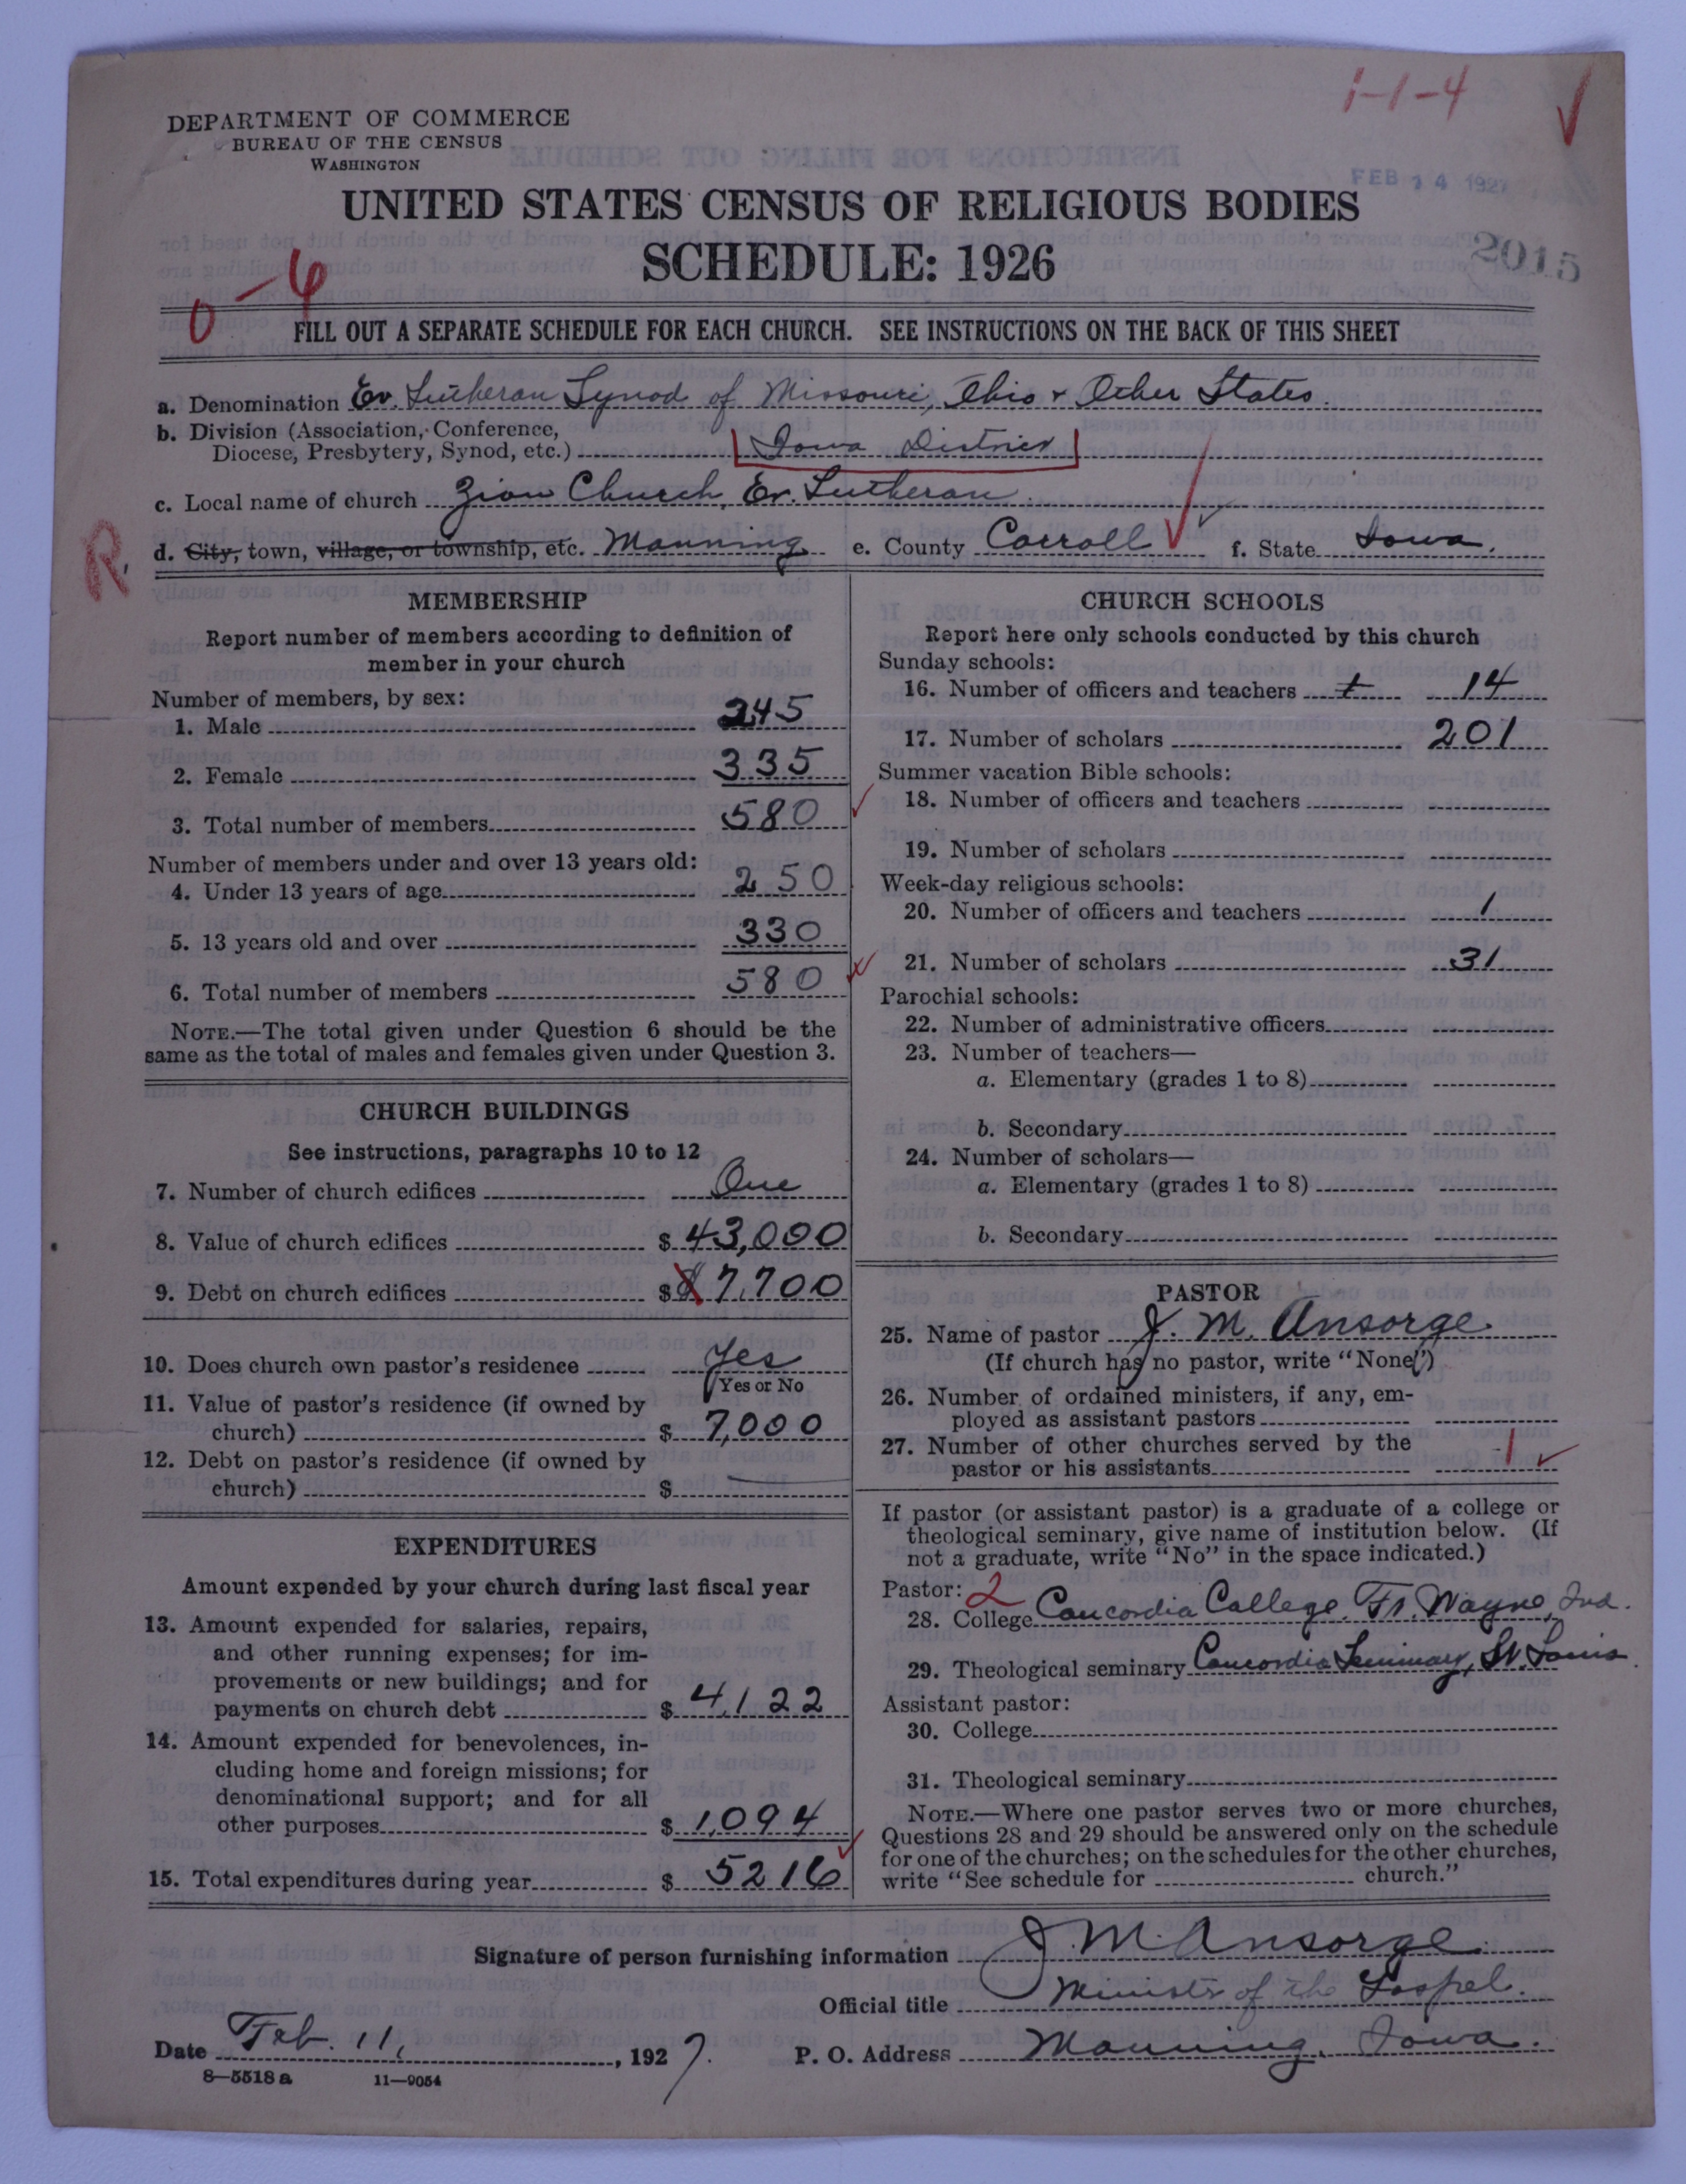 1-1-4
DEPARTMENT OF COMMERCE
BUREAU OF THE CENSUS
WASHINGTON
FEB 14 1927
UNITED STATES CENSUS OF RELIGIOUS BODIES
SCHEDULE: 1926
2015
0-4
FILL OUT A SEPARATE SCHEDULE FOR EACH CHURCH. SEE INSTRUCTIONS ON THE BACK OF THIS SHEET
a. Denomination Ev. Lutheran Synod of Missouri, Ohio & Other States.
b. Division (Association, Conference,
Diocese, Presbytery, Synod, etc.) Iowa District
c. Local name of church Zion Church, Ev. Lutheran.
R,
d. City, town, village, or township, etc. Manning e. County Carroll f. State Iowa.
MEMBERSHIP
Report number of members according to definition of
member in your church
Number of members, by sex:
1. Male 245
2. Female 335
3. Total number of members 580
Number of members under and over 13 years old:
4. Under 13 years of age 250
5. 13 years old and over 330
6. Total number of members 580
NOTE.—The total given under Question 6 should be the
same as the total of males and females given under Question 3.
CHURCH BUILDINGS
See instructions, paragraphs 10 to 12
7. Number of church edifices One
8. Value of church edifices $ 43,000
9. Debt on church edifices $ 7,700
10. Does church own pastor's residence Yes
Yes or No
11. Value of pastor's residence (if owned by
church) $ 7,000
12. Debt on pastor's residence (if owned by
church) $ —
EXPENDITURES
Amount expended by your church during last fiscal year
13. Amount expended for salaries, repairs,
and other running expenses; for im-
provements or new buildings; and for
payments on church debt $ 4,122
14. Amount expended for benevolences, in-
cluding home and foreign missions; for
denominational support; and for all
other purposes $ 1,094
15. Total expenditures during year $ 5216
CHURCH SCHOOLS
Report here only schools conducted by this church
Sunday schools:
16. Number of officers and teachers 14
17. Number of scholars 201
Summer vacation Bible schools:
18. Number of officers and teachers
19. Number of scholars
Week-day religious schools:
20. Number of officers and teachers 1
21. Number of scholars 31
Parochial schools:
22. Number of administrative officers
23. Number of teachers—
a. Elementary (grades 1 to 8)
b. Secondary
24. Number of scholars—
a. Elementary (grades 1 to 8)
b. Secondary
PASTOR
25. Name of pastor J. M. Ansorge.
(If church has no pastor, write "None")
26. Number of ordained ministers, if any, em-
ployed as assistant pastors
27. Number of other churches served by the
pastor or his assistants 1
If pastor (or assistant pastor) is a graduate of a college or
theological seminary, give name of institution below. (If
not a graduate, write "No" in the space indicated.)
Pastor: 2
28. College Concordia College, Ft. Wayne, Ind.
29. Theological seminary Concordia Seminary, St. Louis
Assistant pastor:
30. College
31. Theological seminary
NOTE.—Where one pastor serves two or more churches,
Questions 28 and 29 should be answered only on the schedule
for one of the churches; on the schedules for the other churches,
write "See schedule for church."
Signature of person furnishing information J. M. Ansorge.
Official title Minister of the Gospel.
Date Feb. 11, , 1927. P. O. Address Manning, Iowa.
8—5518 a 11—9054